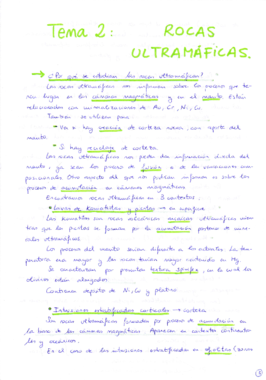 Tema 2: ROCAS
ULTRAMÁFICAS.
→ ¿Por qué se estudian las rocas ultramáficas?
Las rocas ultramáficas nos informan sobre los procesos que tie-
nen lugar en las cámaras magmáticas y en el manto. Están
relacionadas con mineralizaciones de Au, Cr, Ni, Co
También se utilizan para:
• Ver si hay creación de corteza nueva, con aporte del
manto.
• Si hay reciclaje de corteza.
Las rocas ultramáficas nos pueden dar información directa del
manto, ya sean los procesos de fusión o de las variaciones com-
posicionales. Otro aspecto del que nos podrían informar es sobre los
procesos de acumulación en cámaras magmáticas.
Encontramos rocas ultramáficas en 3 contextos:
• Lavas de komatiitas y picritas → en superficie
Las komatiitas son rocas volcánicas masivas ultramáficas mien-
tras que las picritas se forman por la acumulación posterior de mine-
rales ultramáficos.
Los procesos del manto serían diferentes a los actuales. La tem-
peratura era mayor y las rocas tenían mayor contenido en Mg.
Se caracterizan por presentar textura spinifex, en la cual los
olivinos están alargados.
Contienen depósitos de Ni, Cu y platino.
• Intrusiones estratificadas corticales → corteza
Son rocas ultramáficas formadas por procesos de acumulación en
la base de las cámaras magmáticas. Aparecen en contextos continenta-
les y oceánicos.
En el caso de las intrusiones estratificadas en ofiolitas (corteza